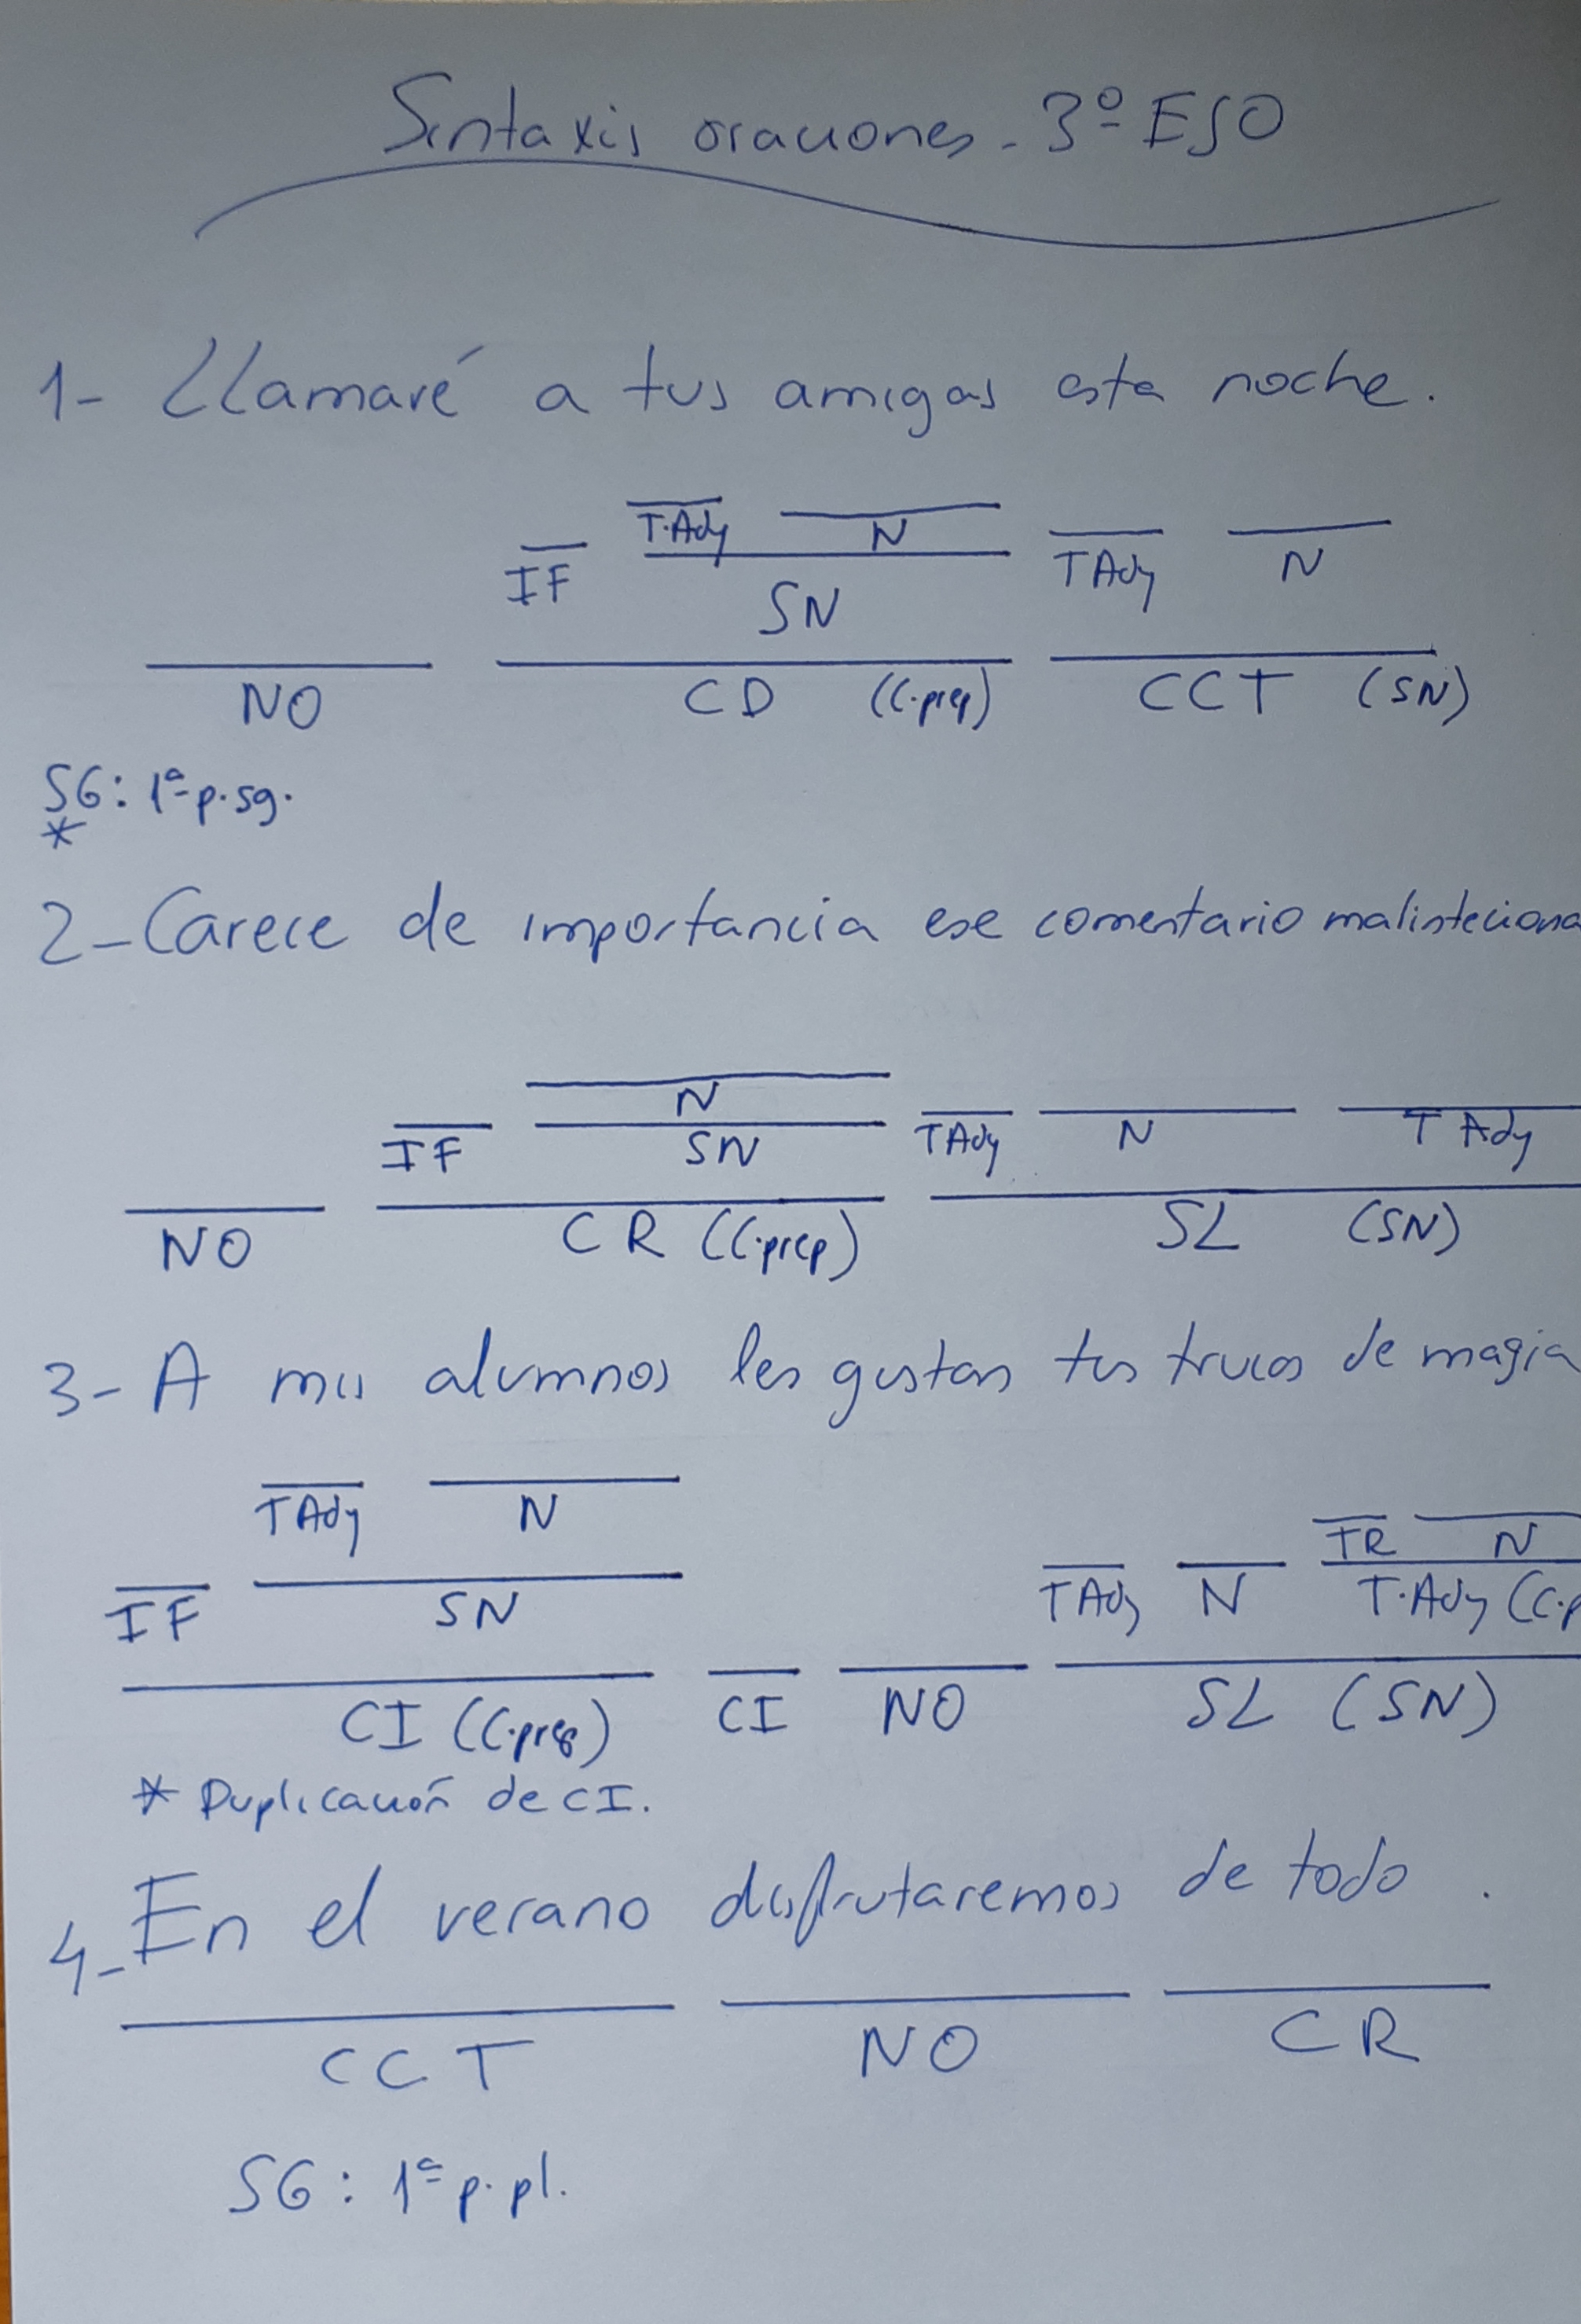 Sintaxis oraciones - 3º ESO
1- Llamaré a tus amigas esta noche.
T.Ady N
IF SN TAdy N
NO CD (C.prep) CCT (SN)
SG: 1ª p. sg.
*
2- Carece de importancia ese comentario malinteciona
N
IF SN TAdy N T Ady
NO CR (C.prep) SL (SN)
3- A mis alumnos les gustan tus trucos de magia
TAdy N
TR N
IF SN TAdy N T.Ady (C.p
CI (C.prep) CI NO SL (SN)
* Duplicación de CI.
4- En el verano disfrutaremos de todo.
CCT NO CR
SG: 1ª p. pl.